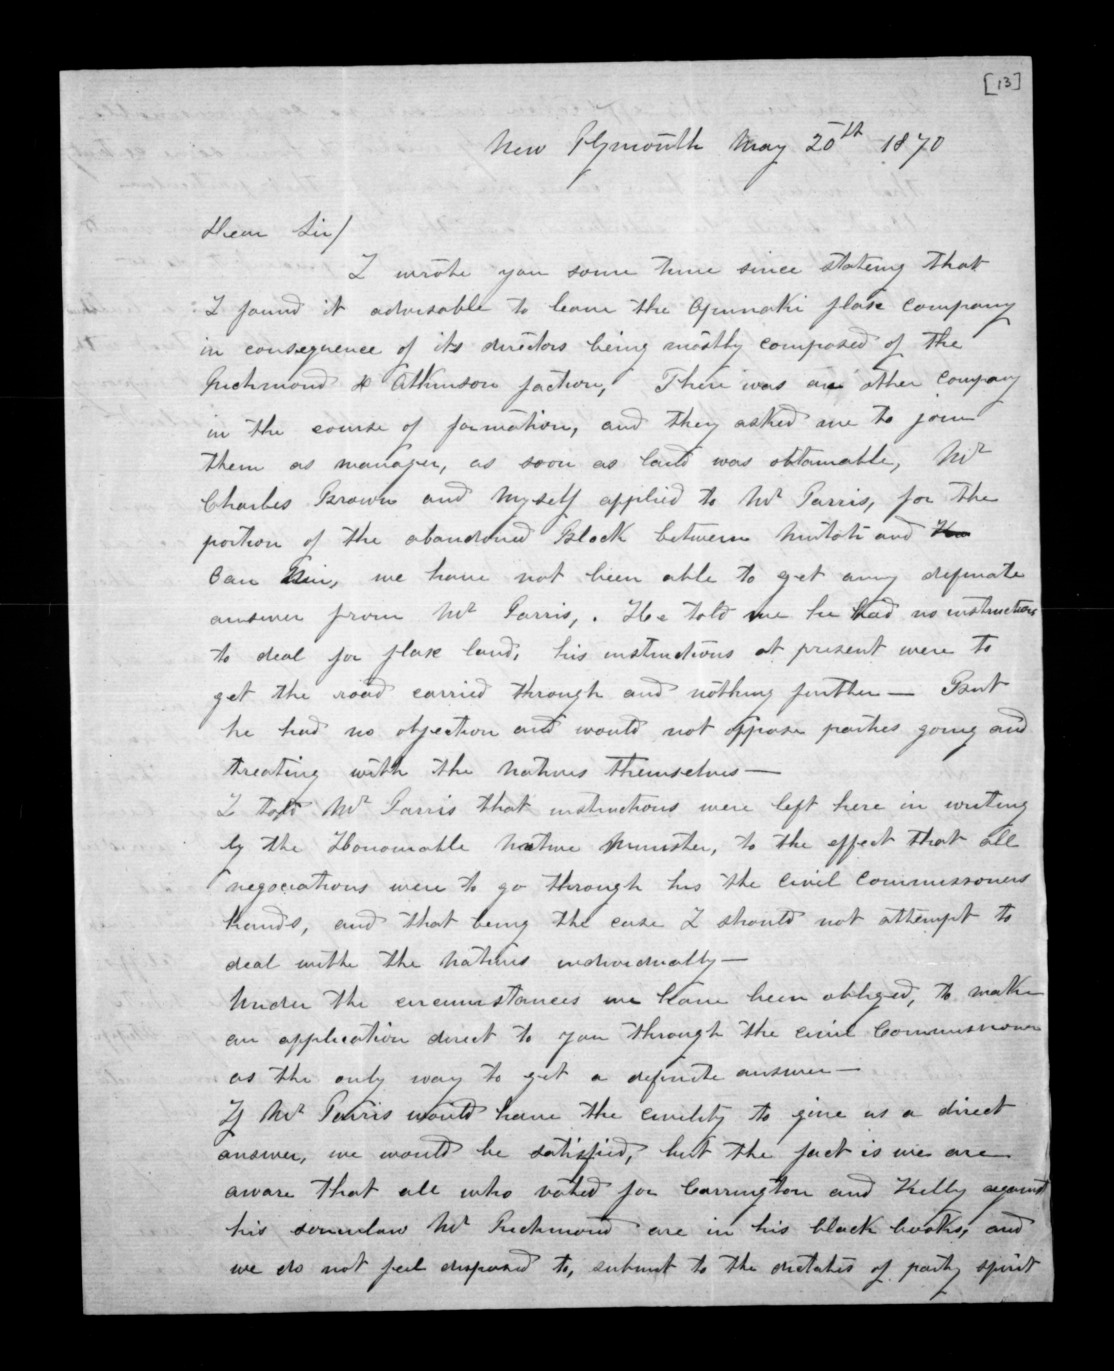 [13]
New Plymouth May 20th 1870
Dear Sir/
I wrote you some time since stating that
I found it advisable to leave the Opunaki flax company
in consequence of its directors being mostly composed of the
Richmond & Atkinson faction, There was an other company
in the course of formation, and they asked me to join
them as manager, as soon as land was obtainable, Mr
Charles Brown and Myself applied to Mr Parris, for the
portion of the abandoned Block between and
we have not been able to get any definate
answer from Mr Parris, . He told me he had no instructions
to deal for flax land, his instructions at present were to
get the road carried through and nothing further — But
he had no objection and would not oppose parties going and
treating with the natives themselves —
I told Mr Parris that instructions were left here in writing
by the Honourable Native Minister, to the effect that all
negociations were to go through his the civil commissoners
hands, and that being the case I should not attempt to
deal withe the natives individually —
Under the circumstances we have been obliged, to make
an application direct to you through the civil Commissioner
as the only way to get a definite answer —
If Mr Parris would have the civility to give us a direct
answer, we would be satisfied, but the fact is we are
aware that all who voted for Carrington and Kelly against
his soninlaw Mr Richmond are in his black books, and
we do not feel disposed to, submit to the dictates of party spirit